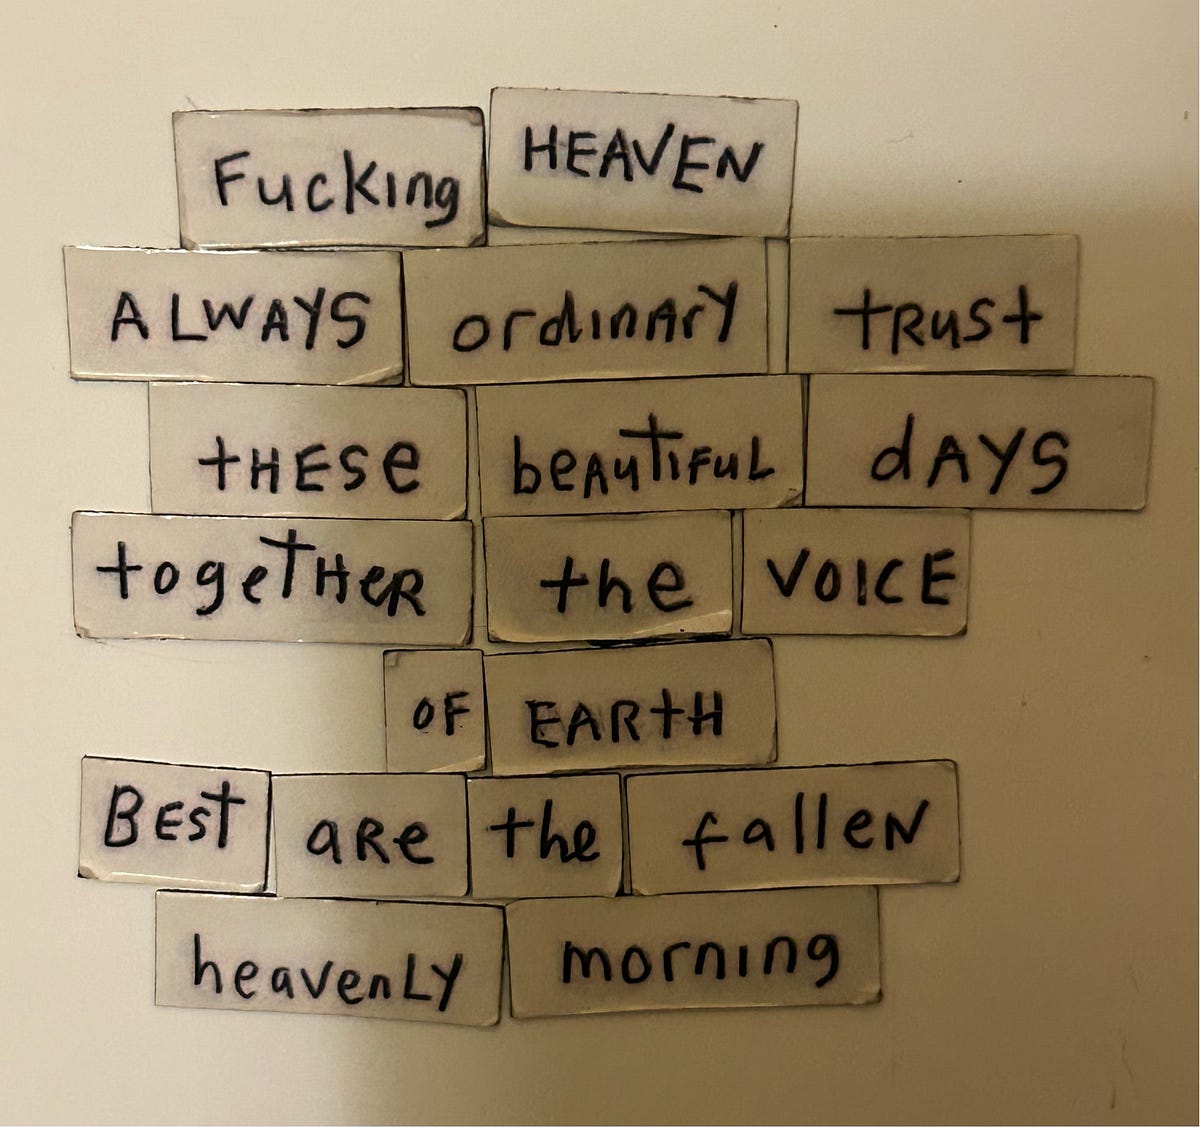 Fucking HEAVEN
ALWAYS ordinAry tRUSt
tHESe beAutiFUL dAYS
togetHeR the VOICE
OF EARtH
BEst aRe the falleN
heavenLY morning